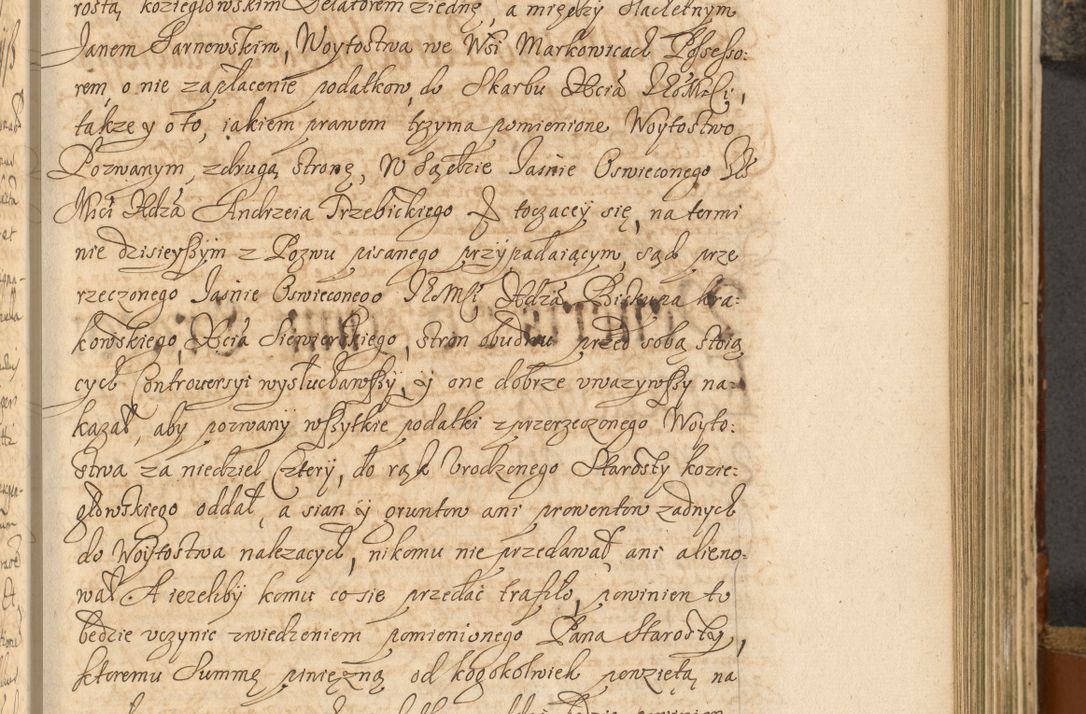 rostą koziegłowskim Delatorem ziednę, a między Slachetnym
Janem Sarnowskim, Woytostwa we Wsi Markowicach Possesso:
rem, o nie zapłacenie podatkow, do Skarbu Xcia
takze y o to, iakiem prawem trzyma pomienione Woytostwo
Pozwanym, z drugą stronę, W Sądzie Jasnie Oswieconego
Mści Xdza Andrzeia Trzebickiego toczącey się, na termi
nie dzisieyszym z Pozwu pisanego przypadaiącym, sąd prze
rzeczonego Jasnie Oswieconego Xdza Biskupa kra:
kowskiego, Xcia Siewierskiego, stron obudwu przed sobą stoią
cych Controversyi wysłuchawszy, y one dobrze vwazywszy na:
kazał, aby pozwany wszytkie podatki z przerzeczonego Woyto:
stwa za niedziel Cztery, do rąk Vrodzonego Starosty kozie:
głowskiego oddał, a sian y gruntow ani prowentow zadnych
do Woytostwa nalezacych, nikomu nie przedawał ani alieno:
wał A iezeliby komu co sie przedać trafiło, powinien to
będzie vczynic zwiedzeniem pomienionego Pana Starosty,
ktoremu Summę pinięzną od kogokolwiek powziętą, na